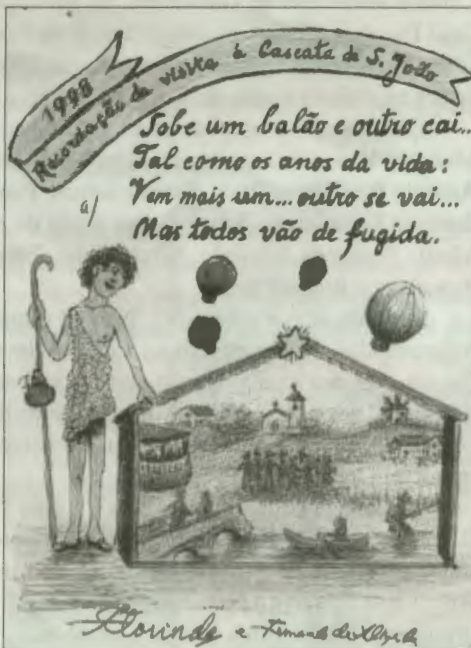 1998
Recordação da visita à Cascata de S. João
Sobe um balão e outro cai...
Tal como os anos da vida:
Vem mais um... outro se vai...
Mas todos vão de fugida.
a/
Florinda e Fernando de